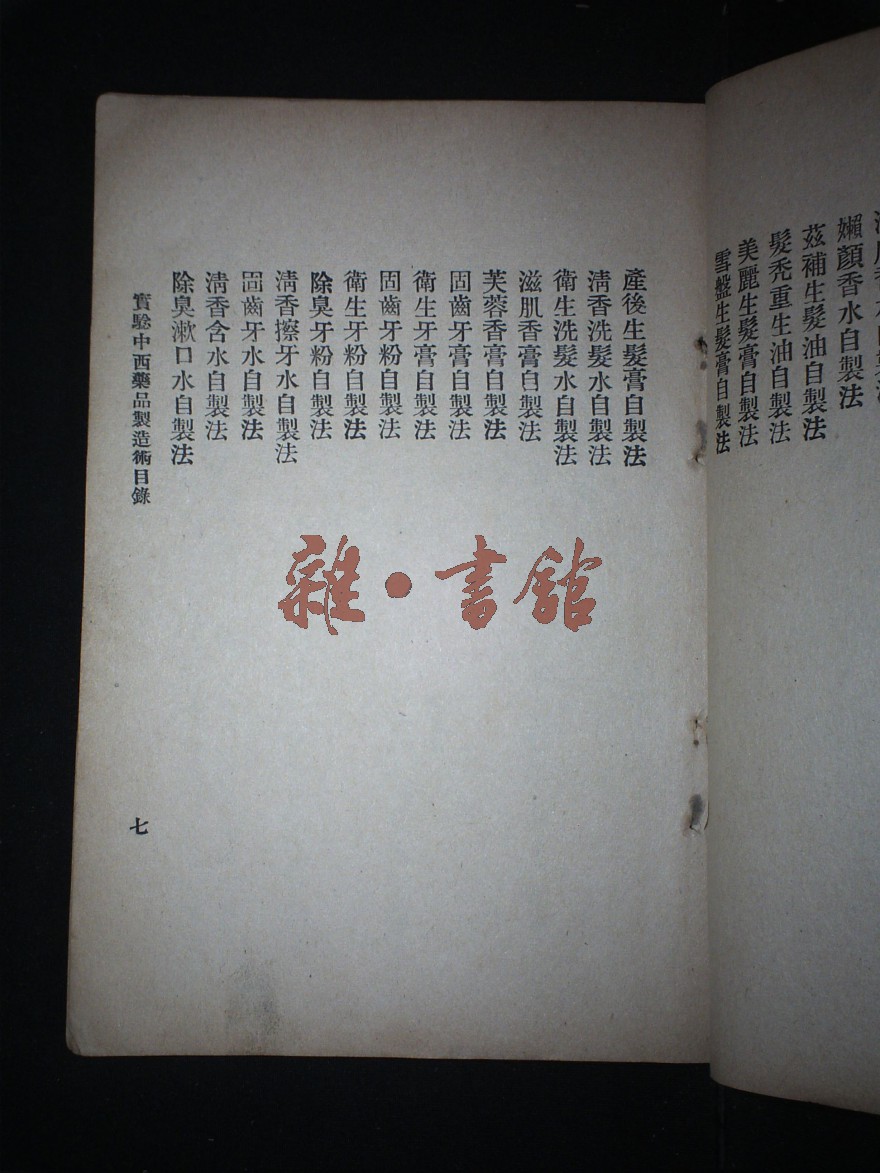 嬾顏香水自製法
茲補生髮油自製法
髮禿重生油自製法
美麗生髮膏自製法
雪盤生髮膏自製法
產後生髮膏自製法
清香洗髮水自製法
衛生洗髮水自製法
滋肌香膏自製法
芙蓉香膏自製法
固齒牙膏自製法
衛生牙膏自製法
固齒牙粉自製法
衛生牙粉自製法
除臭牙粉自製法
清香擦牙水自製法
固齒牙水自製法
清香含水自製法
除臭漱口水自製法
實驗中西藥品製造術目錄
七
雜·書館